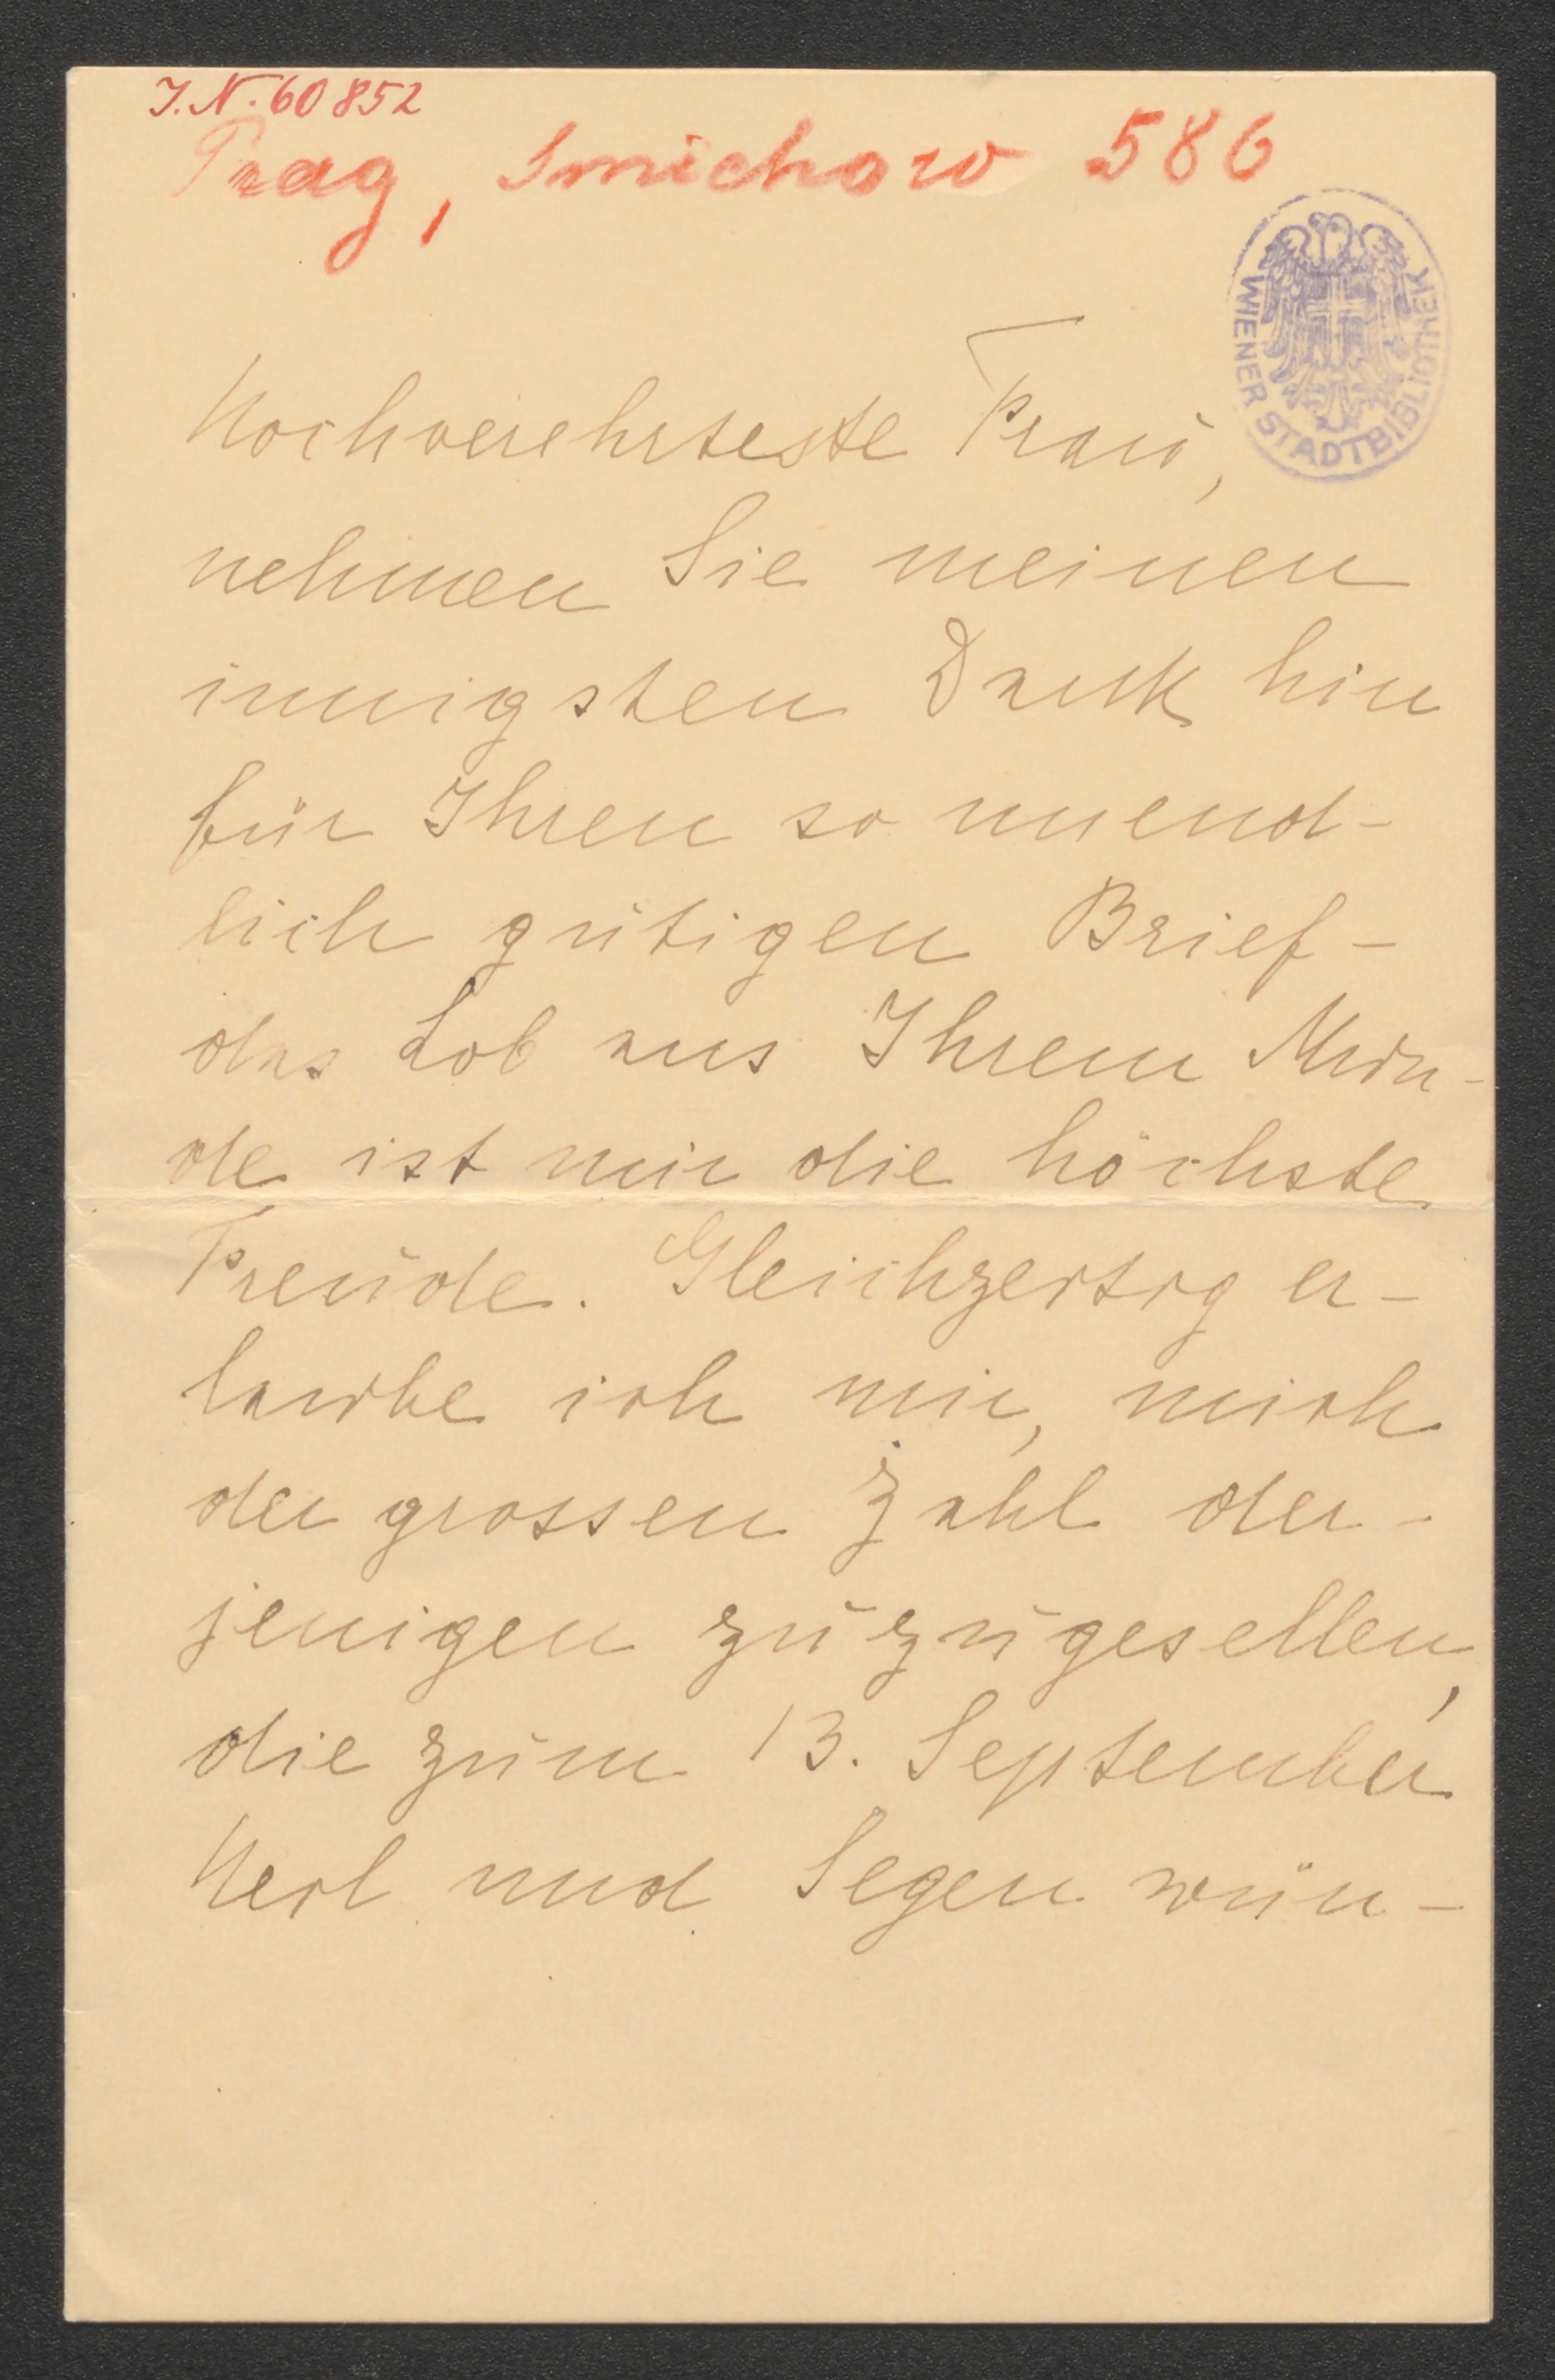 I.N. 60852
Prag, Smichow 586
WIENER STADTBIBLIOTHEK
Hochverehrteste Frau,
nehmen Sie meinen
innigsten Dank hin
für Ihren so unend-
lich gütigen Brief -
das Lob aus Ihrem Mun-
de ist mir die höchste
Freude. Gleichzeitig er-
laube ich mir, mich
der grossen Zahl der-
jenigen zuzugesellen,
die zum 13. September
Heil und Segen wün-